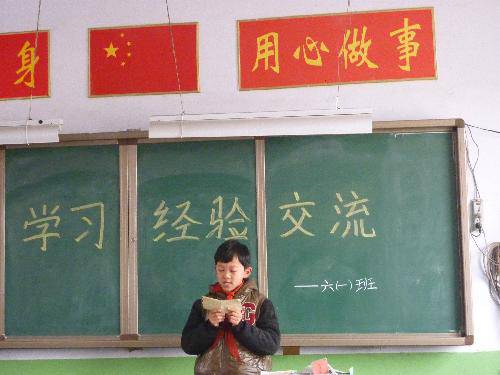 身
用心做事
学习经验交流
——六(一)班